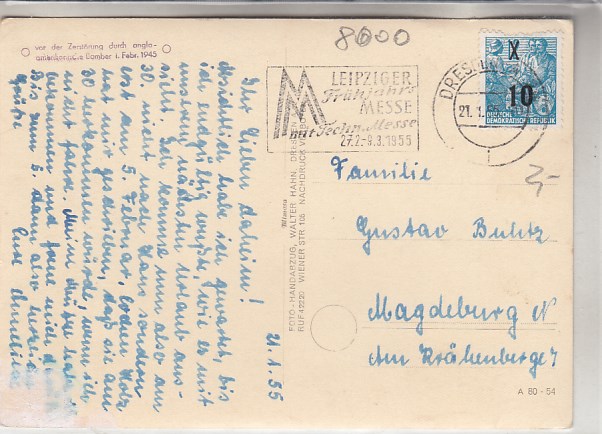 vor der Zerstörung durch anglo-
amerikanische Bomber i. Febr. 1945
8000
LEIPZIGER
Frühjahrs
MESSE
mit Techn. Messe
27.2.-9.3.1955
DRESDEN
21.1.
X
10
DEUTSCHE
DEMOKRATISCHE REPUBLIK
21.1.55
Ihr Lieben daheim!
Absichtlich habe ich gewartet, bis
ich endgültig wußte, wie es mit
unserem nächsten Urlaub aus-
sieht. Ich komme nun also am
30. nicht nach Haus sondern
erst am 5. Februar. Lothar
hat geschrieben, daß sie am
30. kommen würde, wenn ich
nicht
bekommen und freue mich
Bis zum 5. dann also herzliche
Grüße Eure
FOTO-HANDABZUG, WALTER HAHN, DRESDEN
RUF 42220 WIENER STR. 106 NACHDRUCK VERB.
Familie
Gustav Bulitz
Magdeburg N
Am Krähenberge 7
A 80 - 54